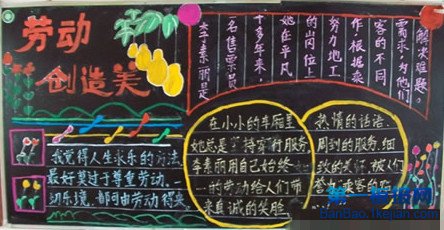 劳动
创造美
李素丽是
一名售票员
十多年来,
她在平凡
的岗位上
努力地工
作,根据乘
客的不同
需求,为他们
解决难题。
我觉得人生求乐的方法
最好莫过于尊重劳动。
切乐境,都可由劳动得来
在小小的车厢里
她总是 持 行服务
李素丽用自己始终
一的劳动给人们带
来真诚的笑脸
热情的话语、
周到的服务、细
致的关怀,被人们
誉为
BanBao.1kejian.com